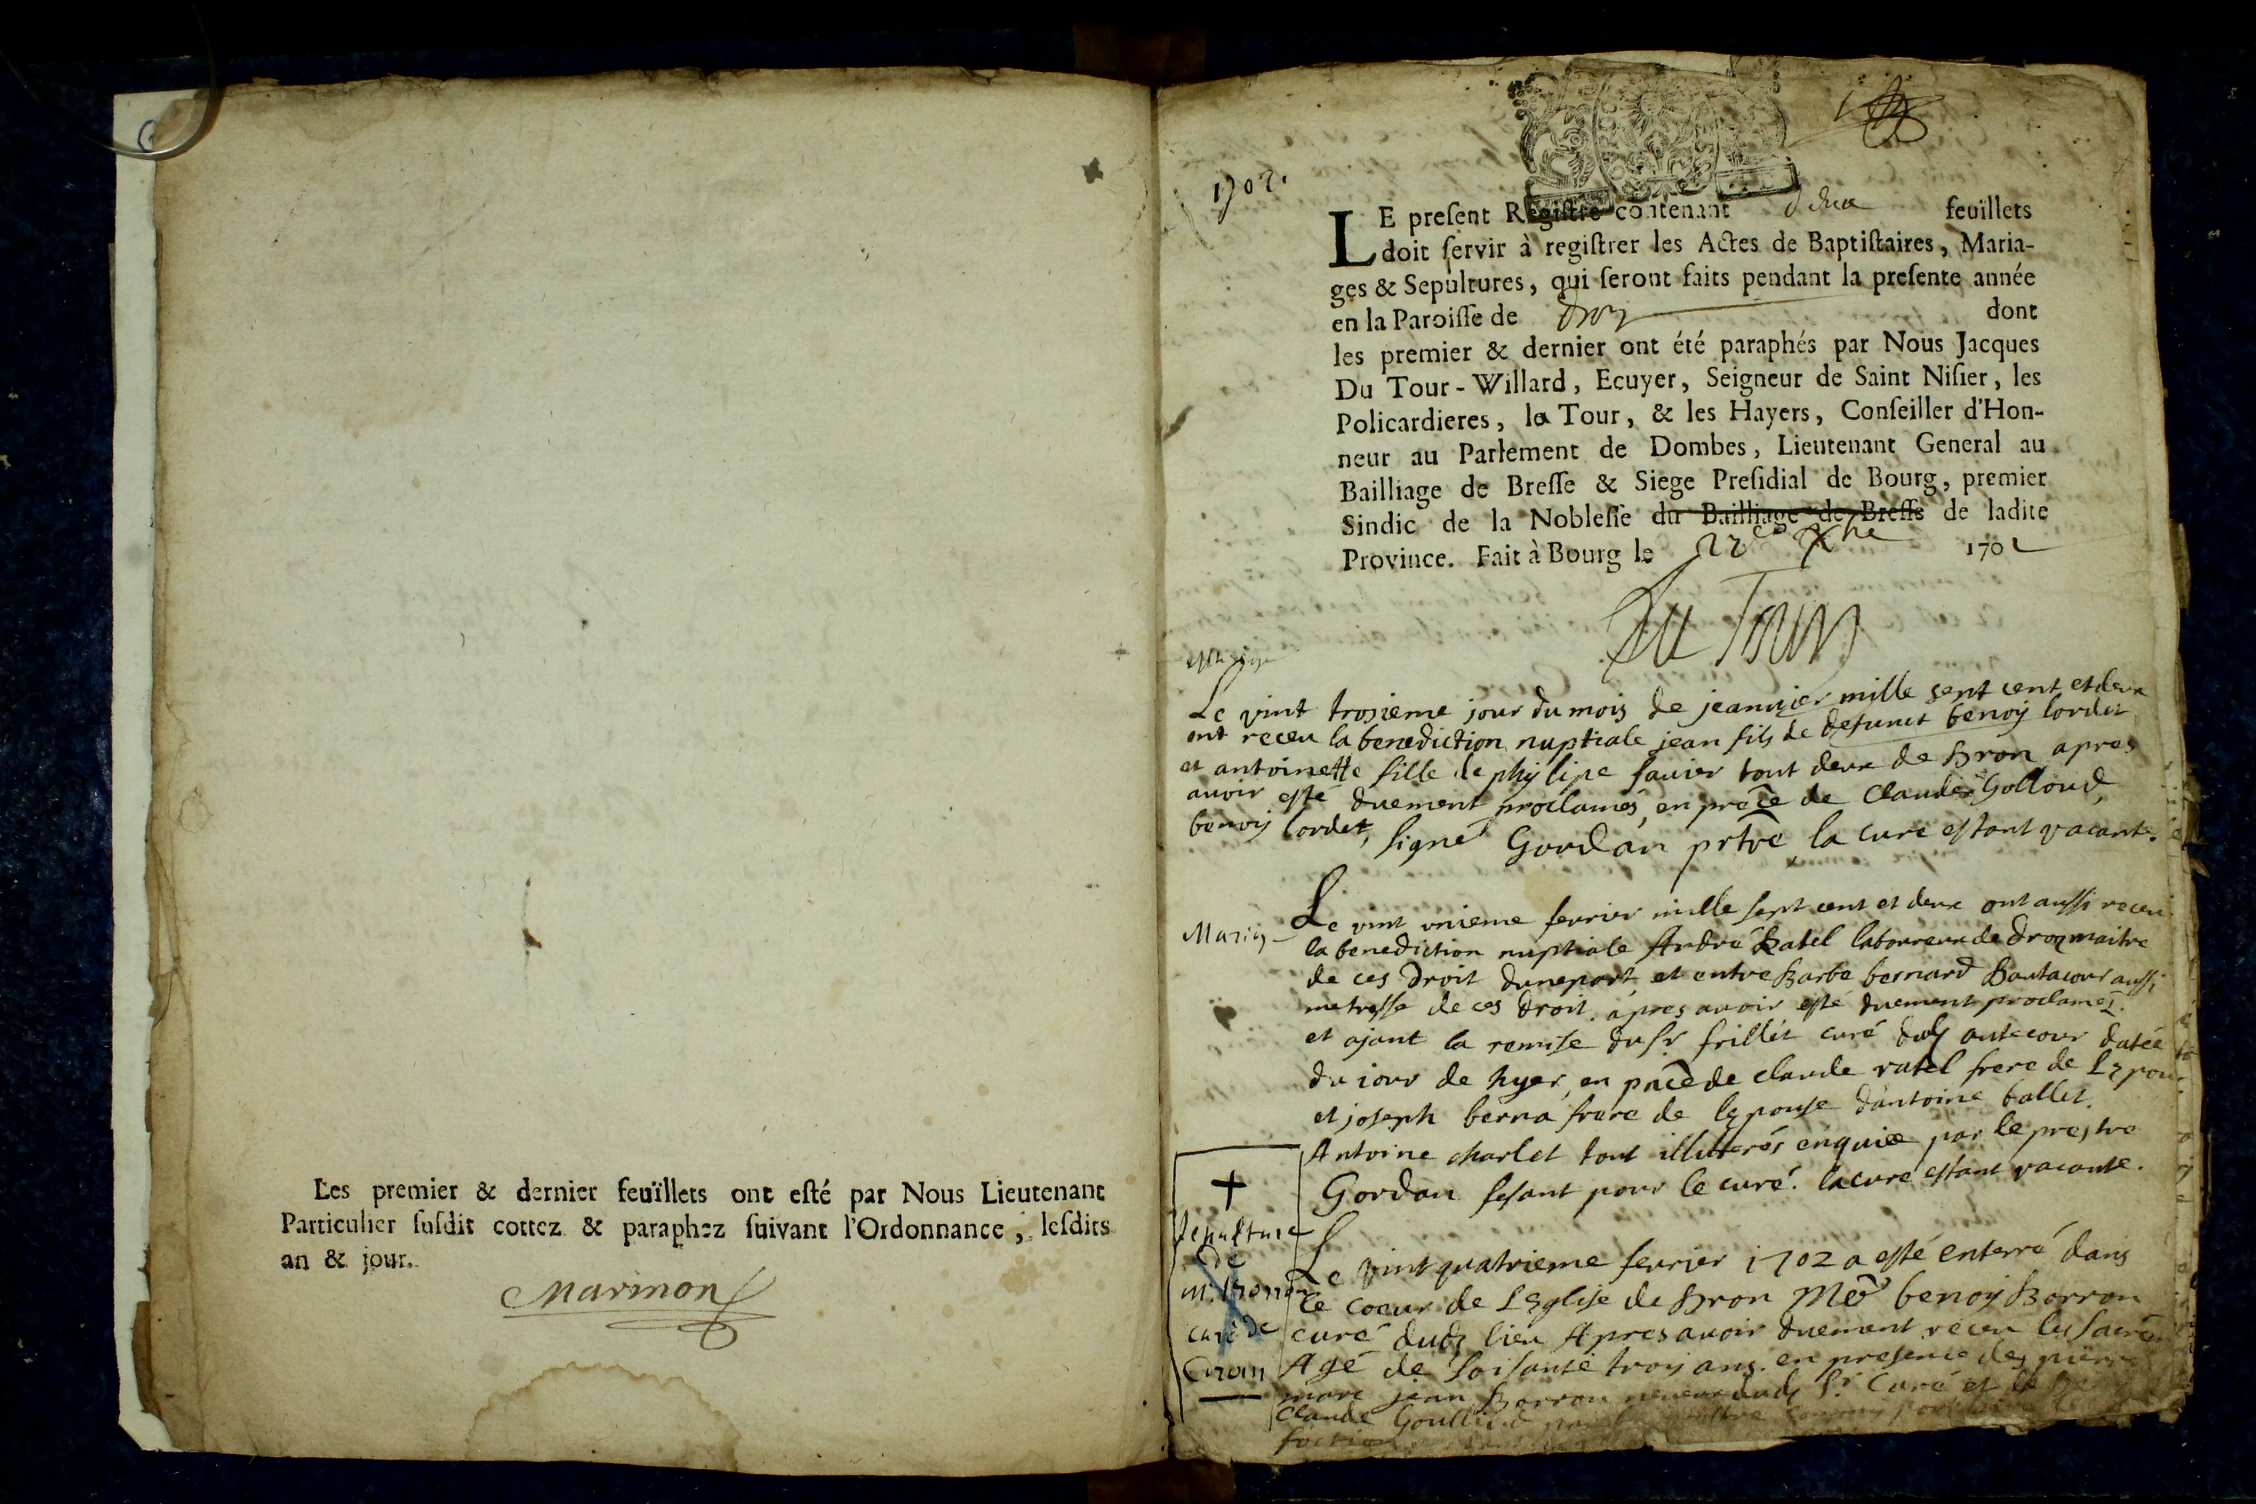 Les premier & dernier feuïllets ont esté par Nous Lieutenant
Particulier susdit cottez & paraphez suivant l'Ordonnance, lesdits
an & jour.
Marinon
1702.
LE present Registre contenant feüillets
doit servir à registrer les Actes de Baptistaires, Maria-
ges & Sepultures, qui seront faits pendant la presente année
en la Paroisse de dont
les premier & dernier ont été paraphés par Nous Jacques
Du Tour-Willard, Ecuyer, Seigneur de Saint Nisier, les
Policardieres, la Tour, & les Hayers, Conseiller d'Hon-
neur au Parlement de Dombes, Lieutenant General au
Bailliage de Bresse & Siege Presidial de Bourg, premier
Sindic de la Noblesse du Bailliage de Bresse de ladite
Province. Fait à Bourg le 1701
Du Tour
Le vint trosieme jour du mois de jeanvier mille sept cent et deux
ont receu la benediction nuptiale jean fils de defunct benoy cordet
et antoinette fille de phylipe favier tout deux de Bron apres
avoir esté duement proclamés, en prãce de Claude Golloud,
benoy Cordet, signé Gordan prtre la cure estant vacante.
Mariag
Le vint unieme fevrier mille sept cent et deux ont aussi receu
la benediction nuptiale André Ratel laboureur de Dron maitre
de ces droit dune part, et entre Barbe bernard aussi
metresse de ces droit. apres avoir este duement proclamés.
et ajant la remise du Sr frillet curé dud antecour datée
du iour de hyer, en pnce de claude ratel frere de
et joseph berna frere de lepouse dantoine ballet.
Antoine charlet tout illiterés enquie par le prestre
Gordan fesant pour le curé. la cure estant vacante.
+
Sepulture
de
m. Borron
curé de
Le vint quatrieme fevrier 1702 a esté enterré dans
le coeur de Leglise de Bron Mre benoy Borron
curé dud lieu Apres avoir duement receu les
Agé de soisante trois ans. en presence des
marc jean Borron neveux dud Sr Curé et
Claude Goulloud